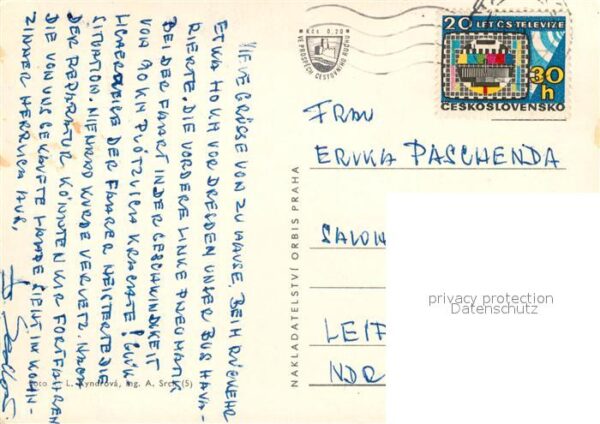 VIELE GRÜSSE VON ZU HAUSE. BEIM RÜCKKEHR
ETWA 40 KM VOR DRESDEN UNSER BUS HAVA-
RIERTE. DIE VORDERE LINKE PNEUMATIK
BEI DER FAHRT IN DER GESCHWINDIKEIT
VON 90 KM PLÖTZLICH KRACHTE!
DER FAHRER MEISTERTE DIE
SITUATION. NIEMAND WURDE VERLETZT. NACH
DER REPARATUR KÖNNTEN WIR FORTFAHREN
DIE VON UNS GEKAUFTE LAMPE SIEHT IM WOHN-
ZIMMER HERRLICH AUS,
Kčs 0,30
VE PROSPĚCH CESTOVNÍHO RUCHU
20 LET ČS. TELEVIZE
30 h
ČESKOSLOVENSKO
FRAU
ERIKA PASCHENDA
SALOM
LEIP
NDR
NAKLADATELSTVÍ ORBIS PRAHA
Foto L. Kyndrová, Ing. A. Srch (5)
privacy protection
Datenschutz